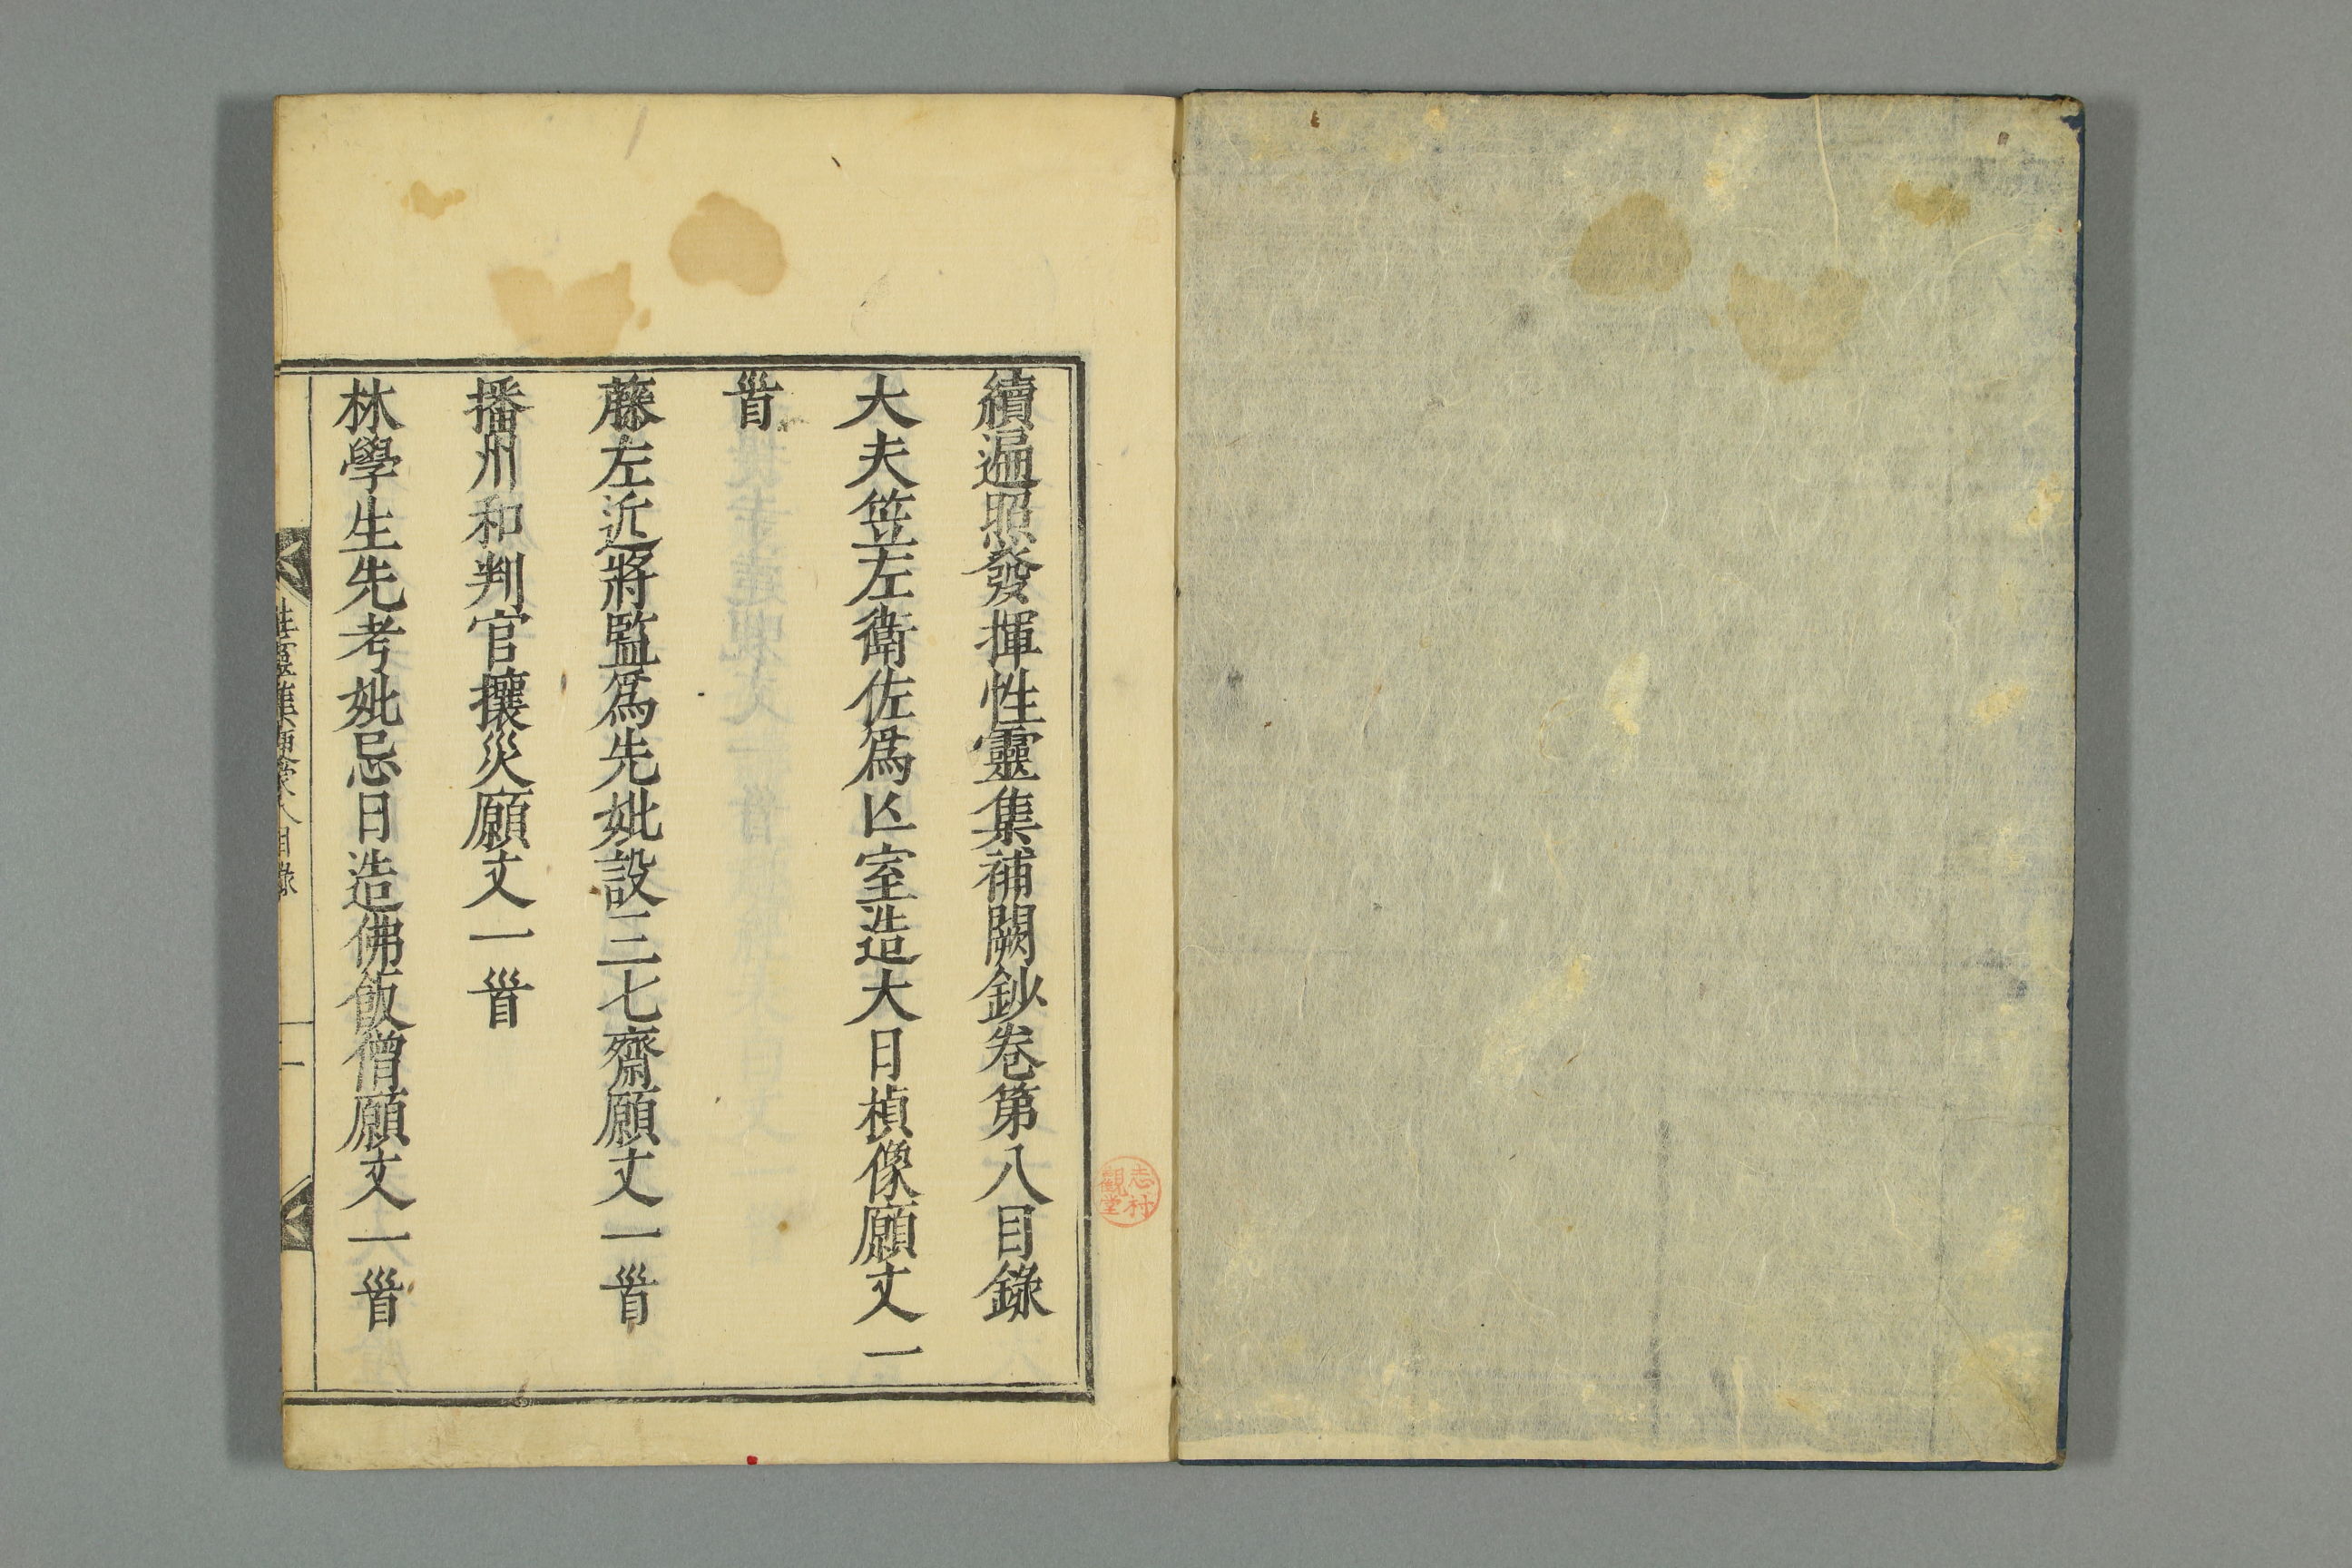 續遍照發揮性靈集補闕鈔卷第八目錄
大夫笠左衞佐爲亾室造大日楨像願文一
首
藤左近將監爲先妣設三七齋願文一首
播州和判官攘災願文一首
林學生先考妣忌日造佛飯僧願文一首
性靈集便蒙八目錄
一
志村
觀堂